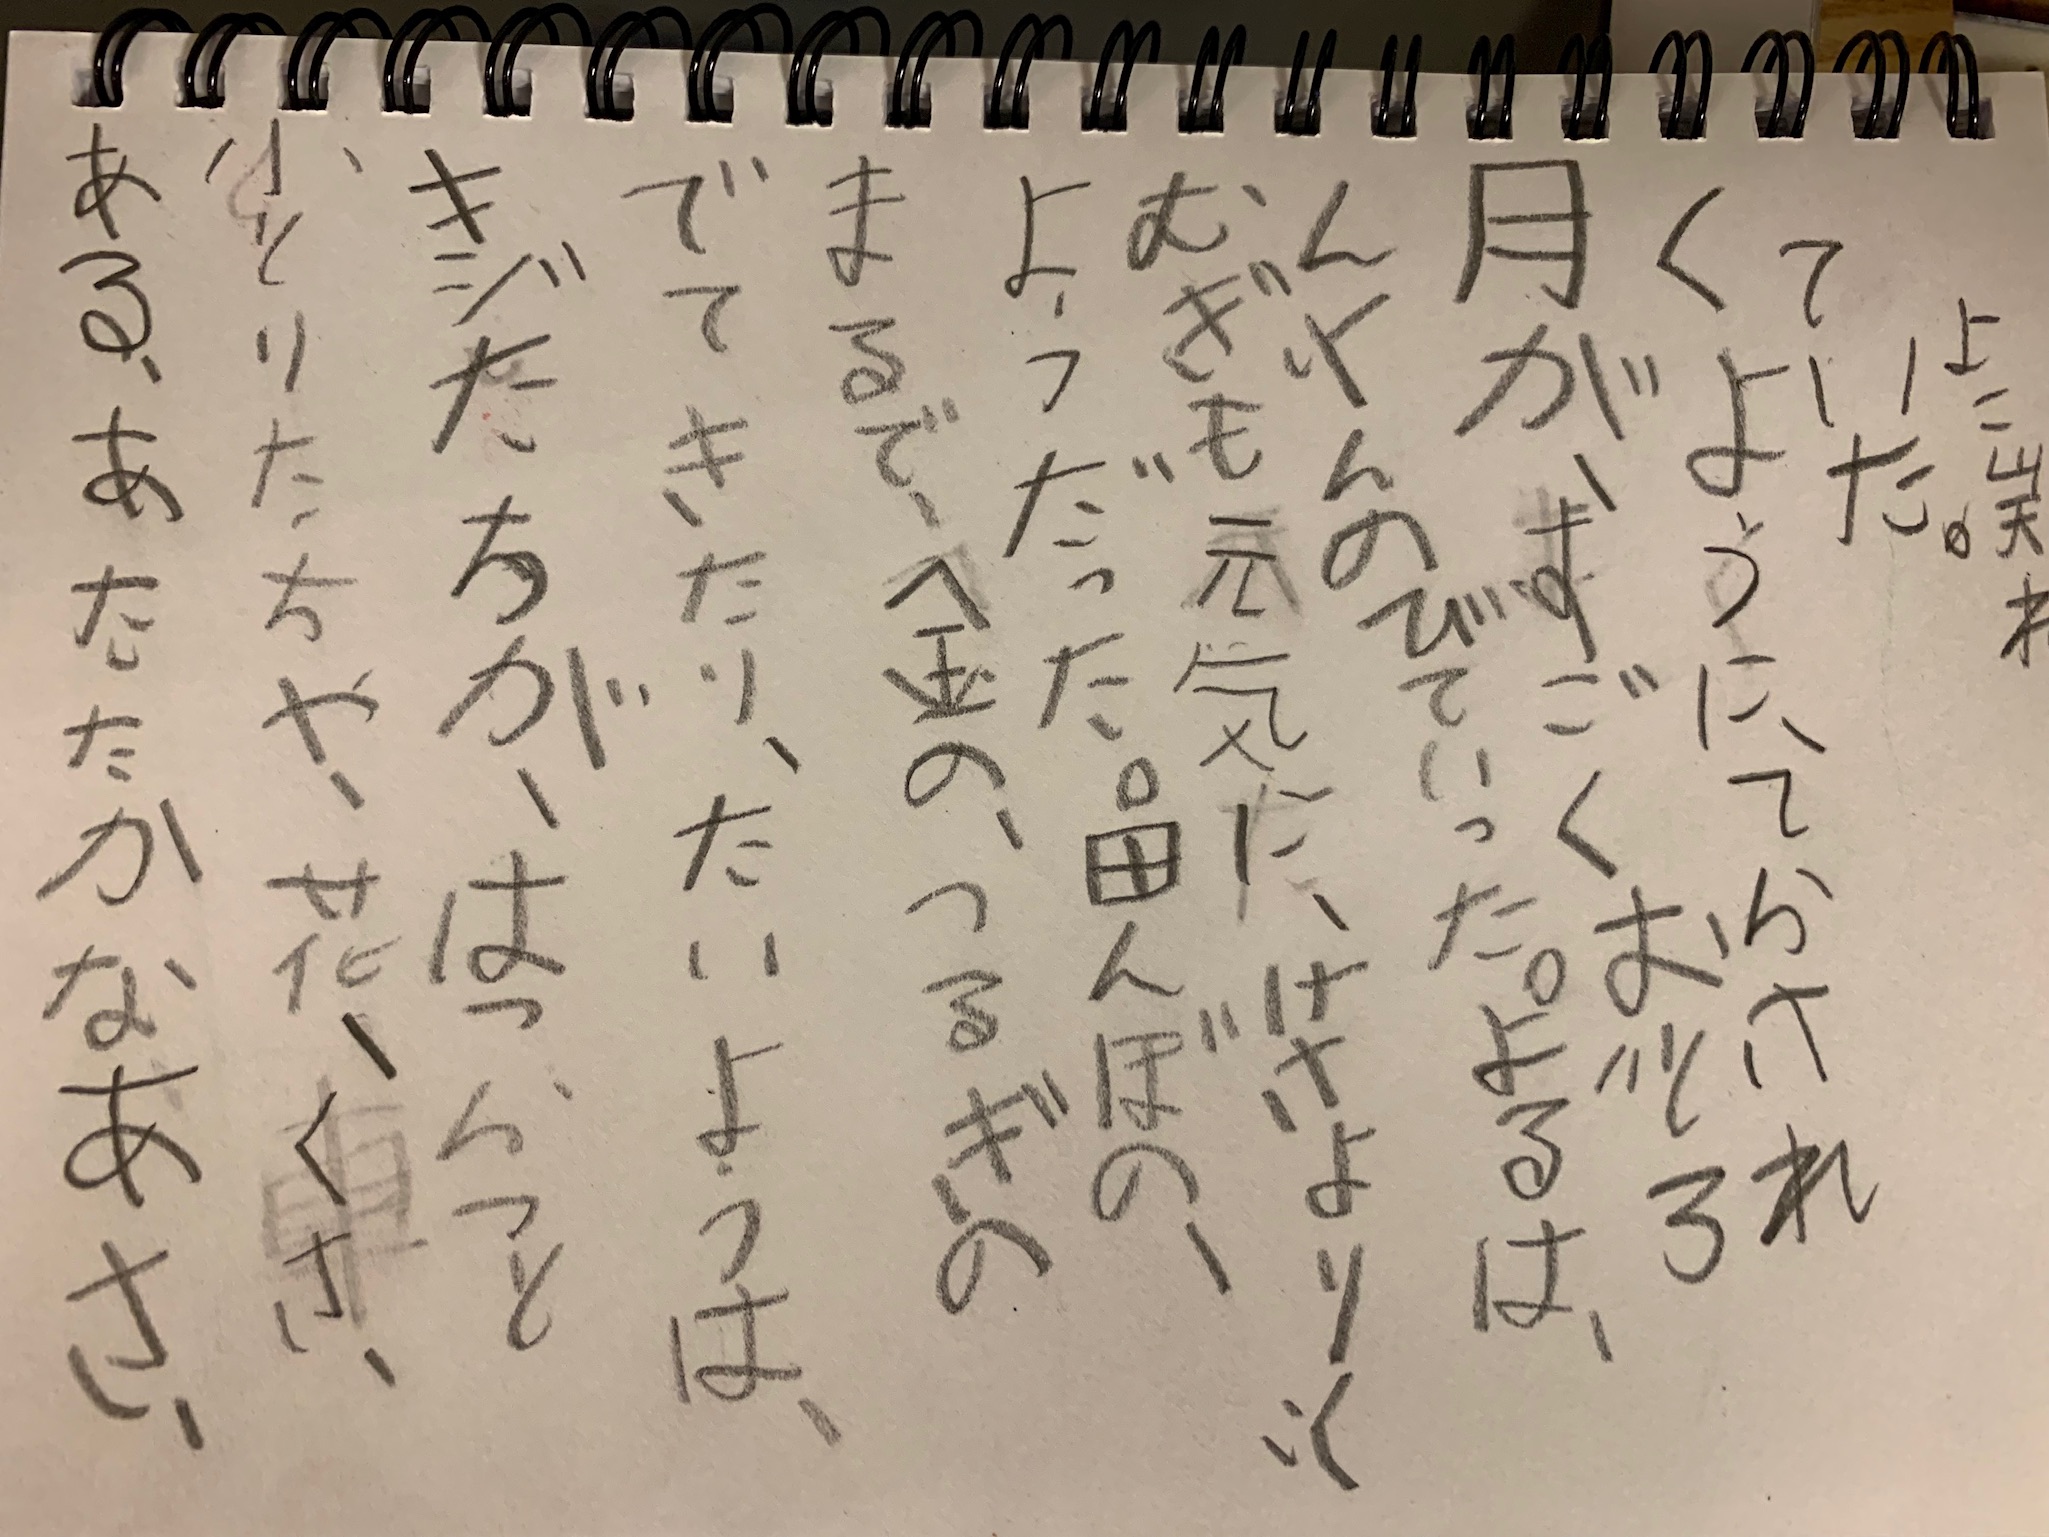 ある、あたたかなあさ、
小とりたちや、花、くさ、
キジたちが、はつらつと
でてきたり、たいようは、
まるで、金の、つるぎの
ようだった。田んぼの、
むぎも元気に、けさよりぐ
んぐんのびていった。よるは、
月が、すごくおどろ
くように、てらされ
ていた。
よこ山天